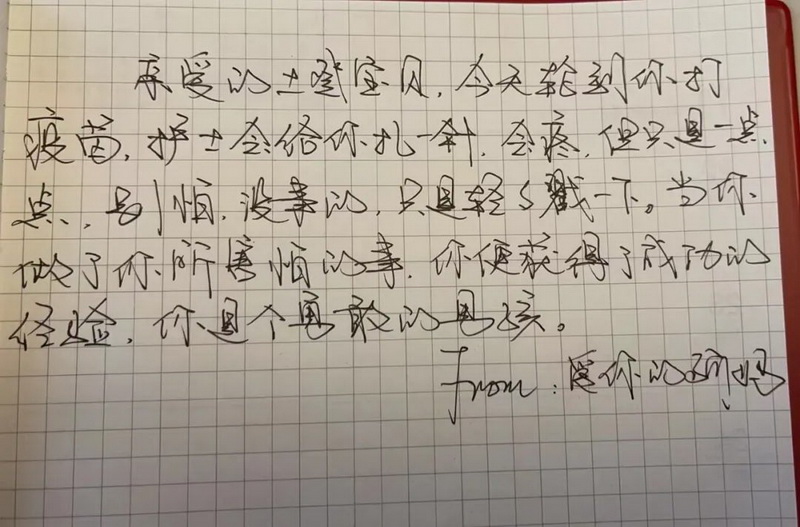 亲爱的土戥宝贝,今天轮到你打
疫苗,护士会给你扎一针,会疼,但只是一点
点,别怕,没事的,只是轻轻戳一下。当你
做了你所害怕的事,你便获得了成功的
经验,你是个勇敢的男孩。
From:爱你的妈